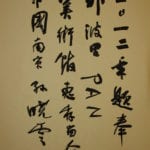 二〇一二年题奉
那波里 PAN
美術館惠存
中國南京孙晓云